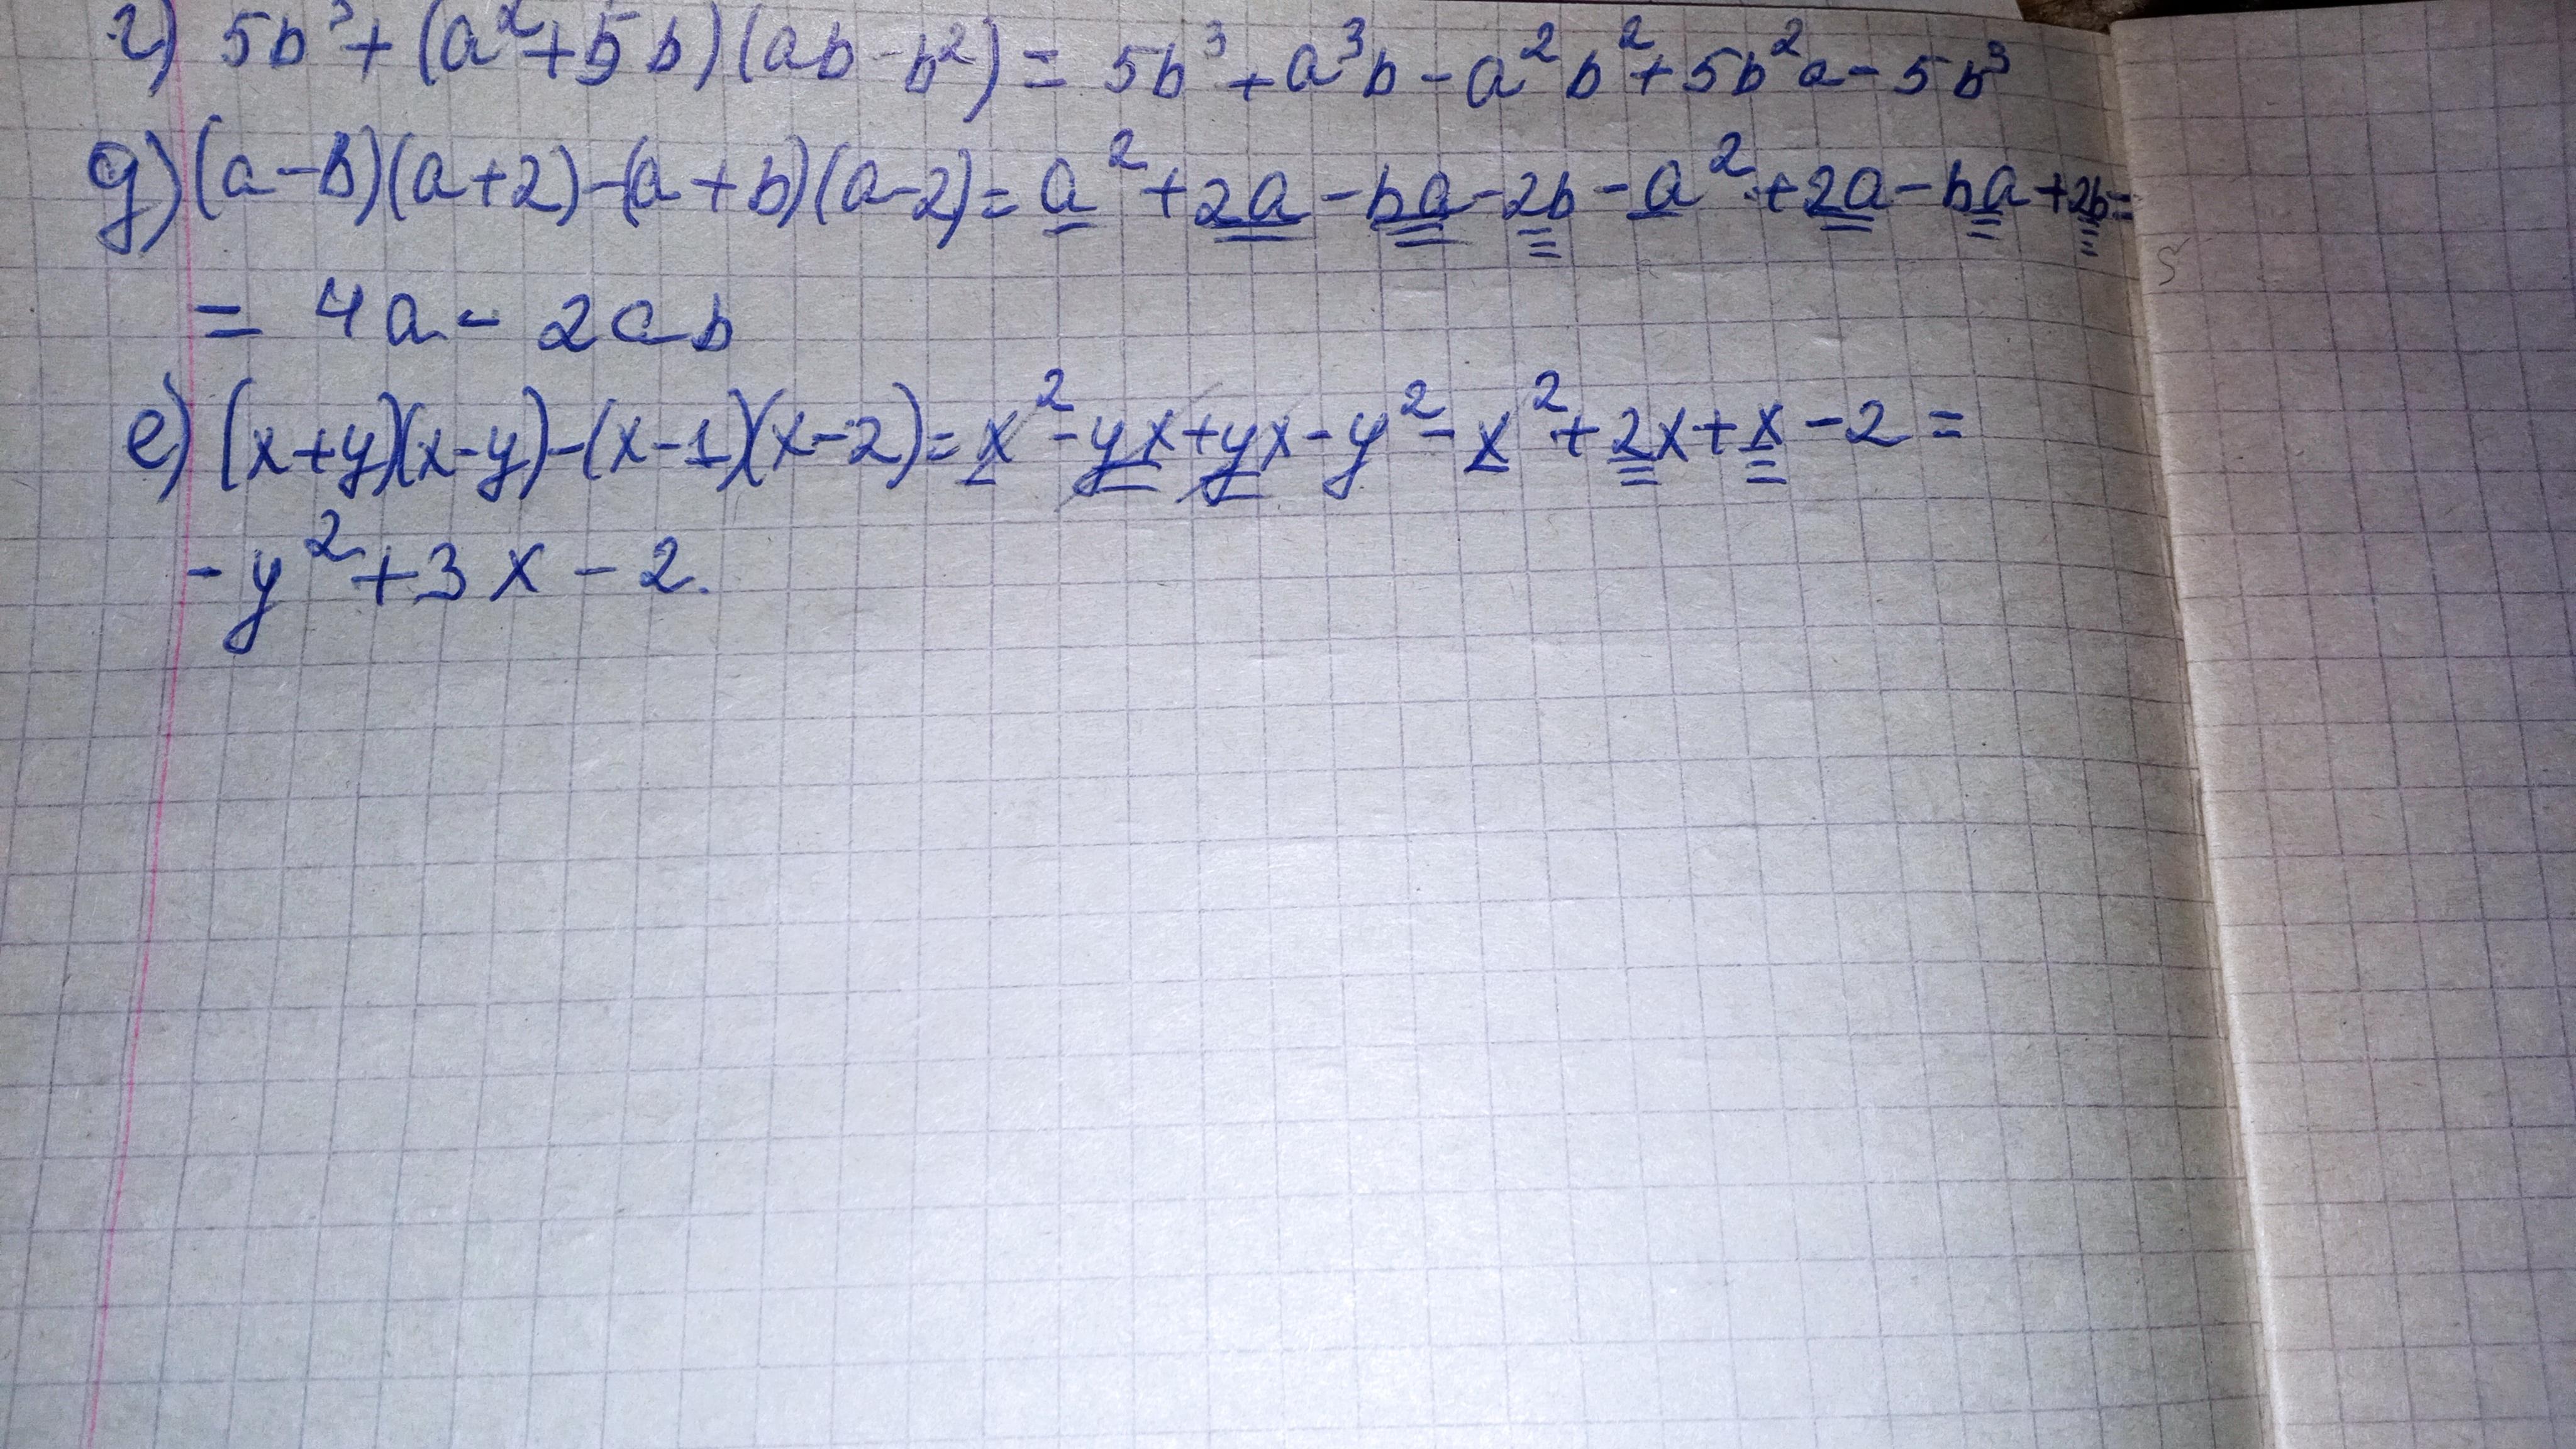 г) 5b³ + (a² + 5b)(ab - b²) = 5b³ + a³b - a²b² + 5b²a - 5b³
g) (a - b)(a + 2) - (a + b)(a - 2) = a² + 2a - ba - 2b - a² + 2a - ba + 2b =
= 4a - 2ab
е) (x + y)(x - y) - (x - 1)(x - 2) = x² - yx + yx - y² - x² + 2x + x - 2 =
- y² + 3x - 2.